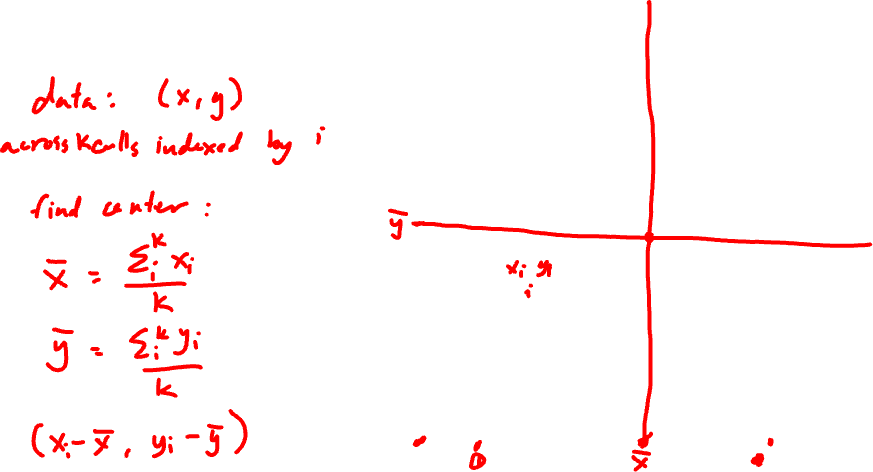 data: (x, y)
across k cells indexed by i
find center:
x̄ = Σᵢᵏ xᵢ / k
ȳ = Σᵢᵏ yᵢ / k
(xᵢ - x̄, yᵢ - ȳ)
ȳ
xᵢ yᵢ
i
x̄